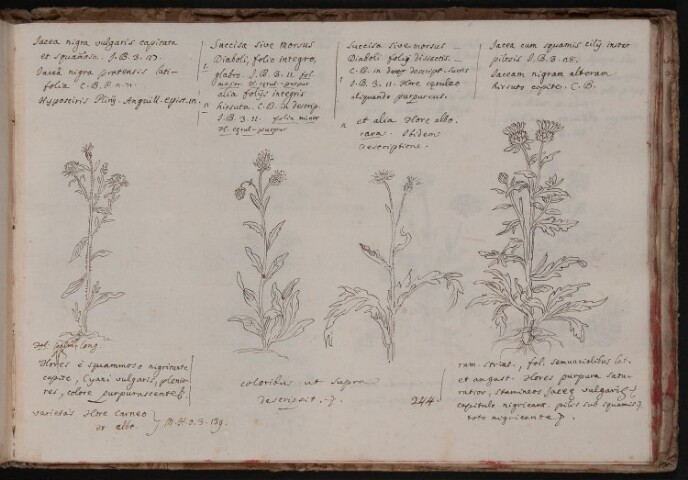 Jacea nigra vulgaris capitata
et squamosa. J.B.3.27.
Jacea nigra pratensis lati-
folia C.B.P.
Hyoseiris Plinij. Anguill.
Succisa sive morsus
Diaboli, folio integro,
glabro. J.B.3.11. fol.
major. fl. cærul-purpur
alia folijs integris
hirsuta. C.B. in descrip.
J.B.3.11. folia minor
fl. cærul-purpur
Succisa sive morsus
Diaboli folijs dissectis.
C.B. in descript.
J.B.3.11. flore cæruleo
aliquando purpureus.
et alia flore albo.
rara. Ibidem
descriptione.
Jacea cum squamis cilij instar
pilosis J.B.3.28.
Jaceam nigram alteram
hirsuto capite. C.B.
fol. palm. long.
Flores è squammoso nigricante
capite, Cyani vulgaris, plenio-
res, colore purpurascente
varietas flore carneo
or albo. } M.H.O.3.139.
coloribus ut supra
descripsit.
244.
ram. striat., fol. lat.
et angust. flores purpura satu-
ratior, stamineos Jaceæ vulgaris
capitulo nigricant. pilis sub squamis
toto nigricante